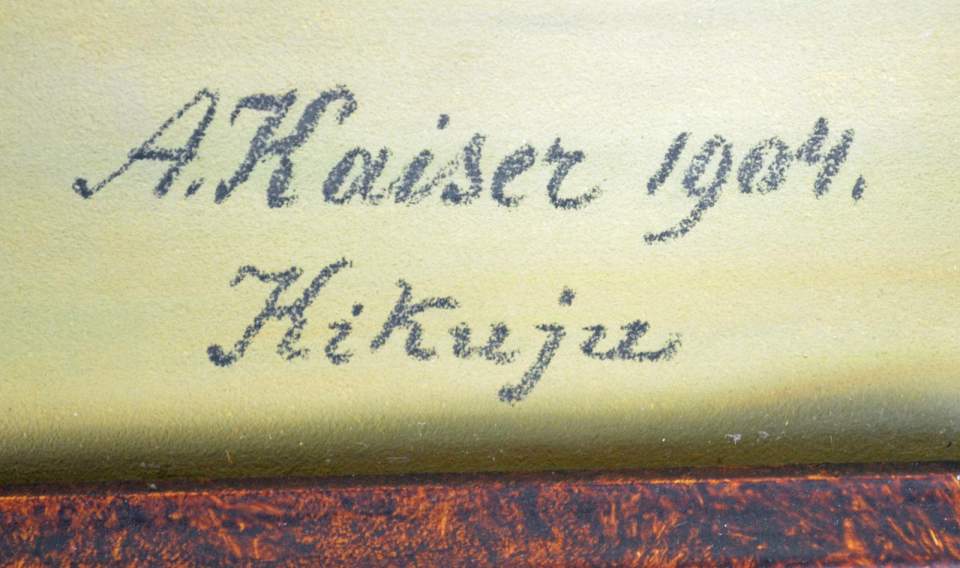 A. Kaiser 1904.
Kikuju